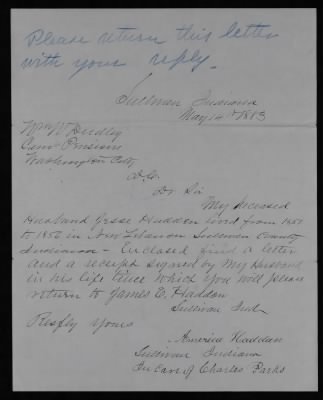 Please return this letter
with your reply.
Sullivan Indiana
May 14th 1883
Wm W Dudley
Com Pension
Washington City
D.C.
Dr Sir
My deceased
Husband Jesse Haddon lived from
to 1856 in New Lebanon Sullivan County
Indiana - Enclosed find a letter
and a receipt signed by My Husband
in his life time which you will please
return to James E. Haddon
Sullivan Ind
Respfly Yours
America Haddon
Sullivan Indiana
In Care of Charles Parks